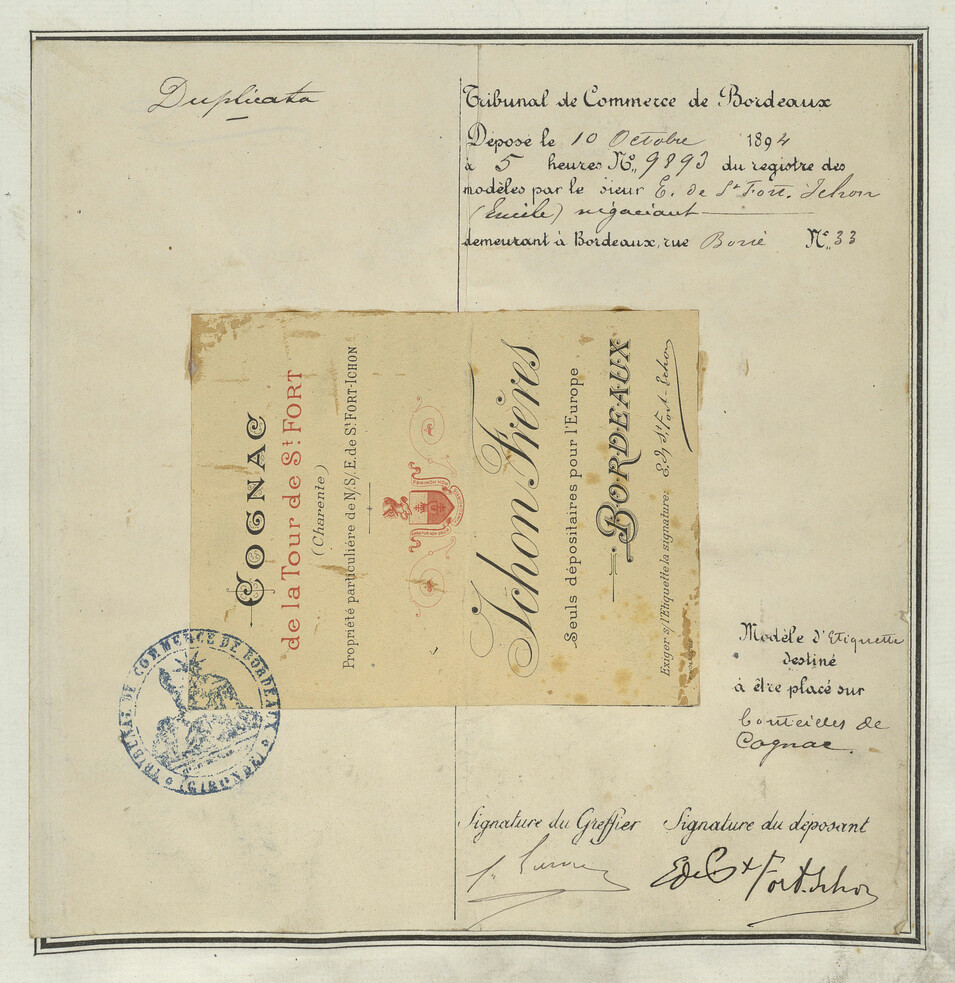 Duplicata
Tribunal de Commerce de Bordeaux
Déposé le 10 Octobre 1894
à 5 heures N° 9893 du registre des
modèles par le sieur E. de St Fort. Ichon
(Emile) négociant
demeurant à Bordeaux, rue Borie N° 33
COGNAC
de la Tour de St FORT
(Charente)
Propriété particulière de N/S/ E. de St FORT-ICHON
Ichon Frères
Seuls dépositaires pour l'Europe
BORDEAUX
Exiger s/l'Etiquette la signature: E. de St Fort-Ichon
TRIBUNAL DE COMMERCE DE BORDEAUX
(GIRONDE)
Modèle d'Etiquette
destiné
à être placé sur
bouteilles de
Cognac.
Signature du Greffier Signature du déposant
E de St Fort. Ichon